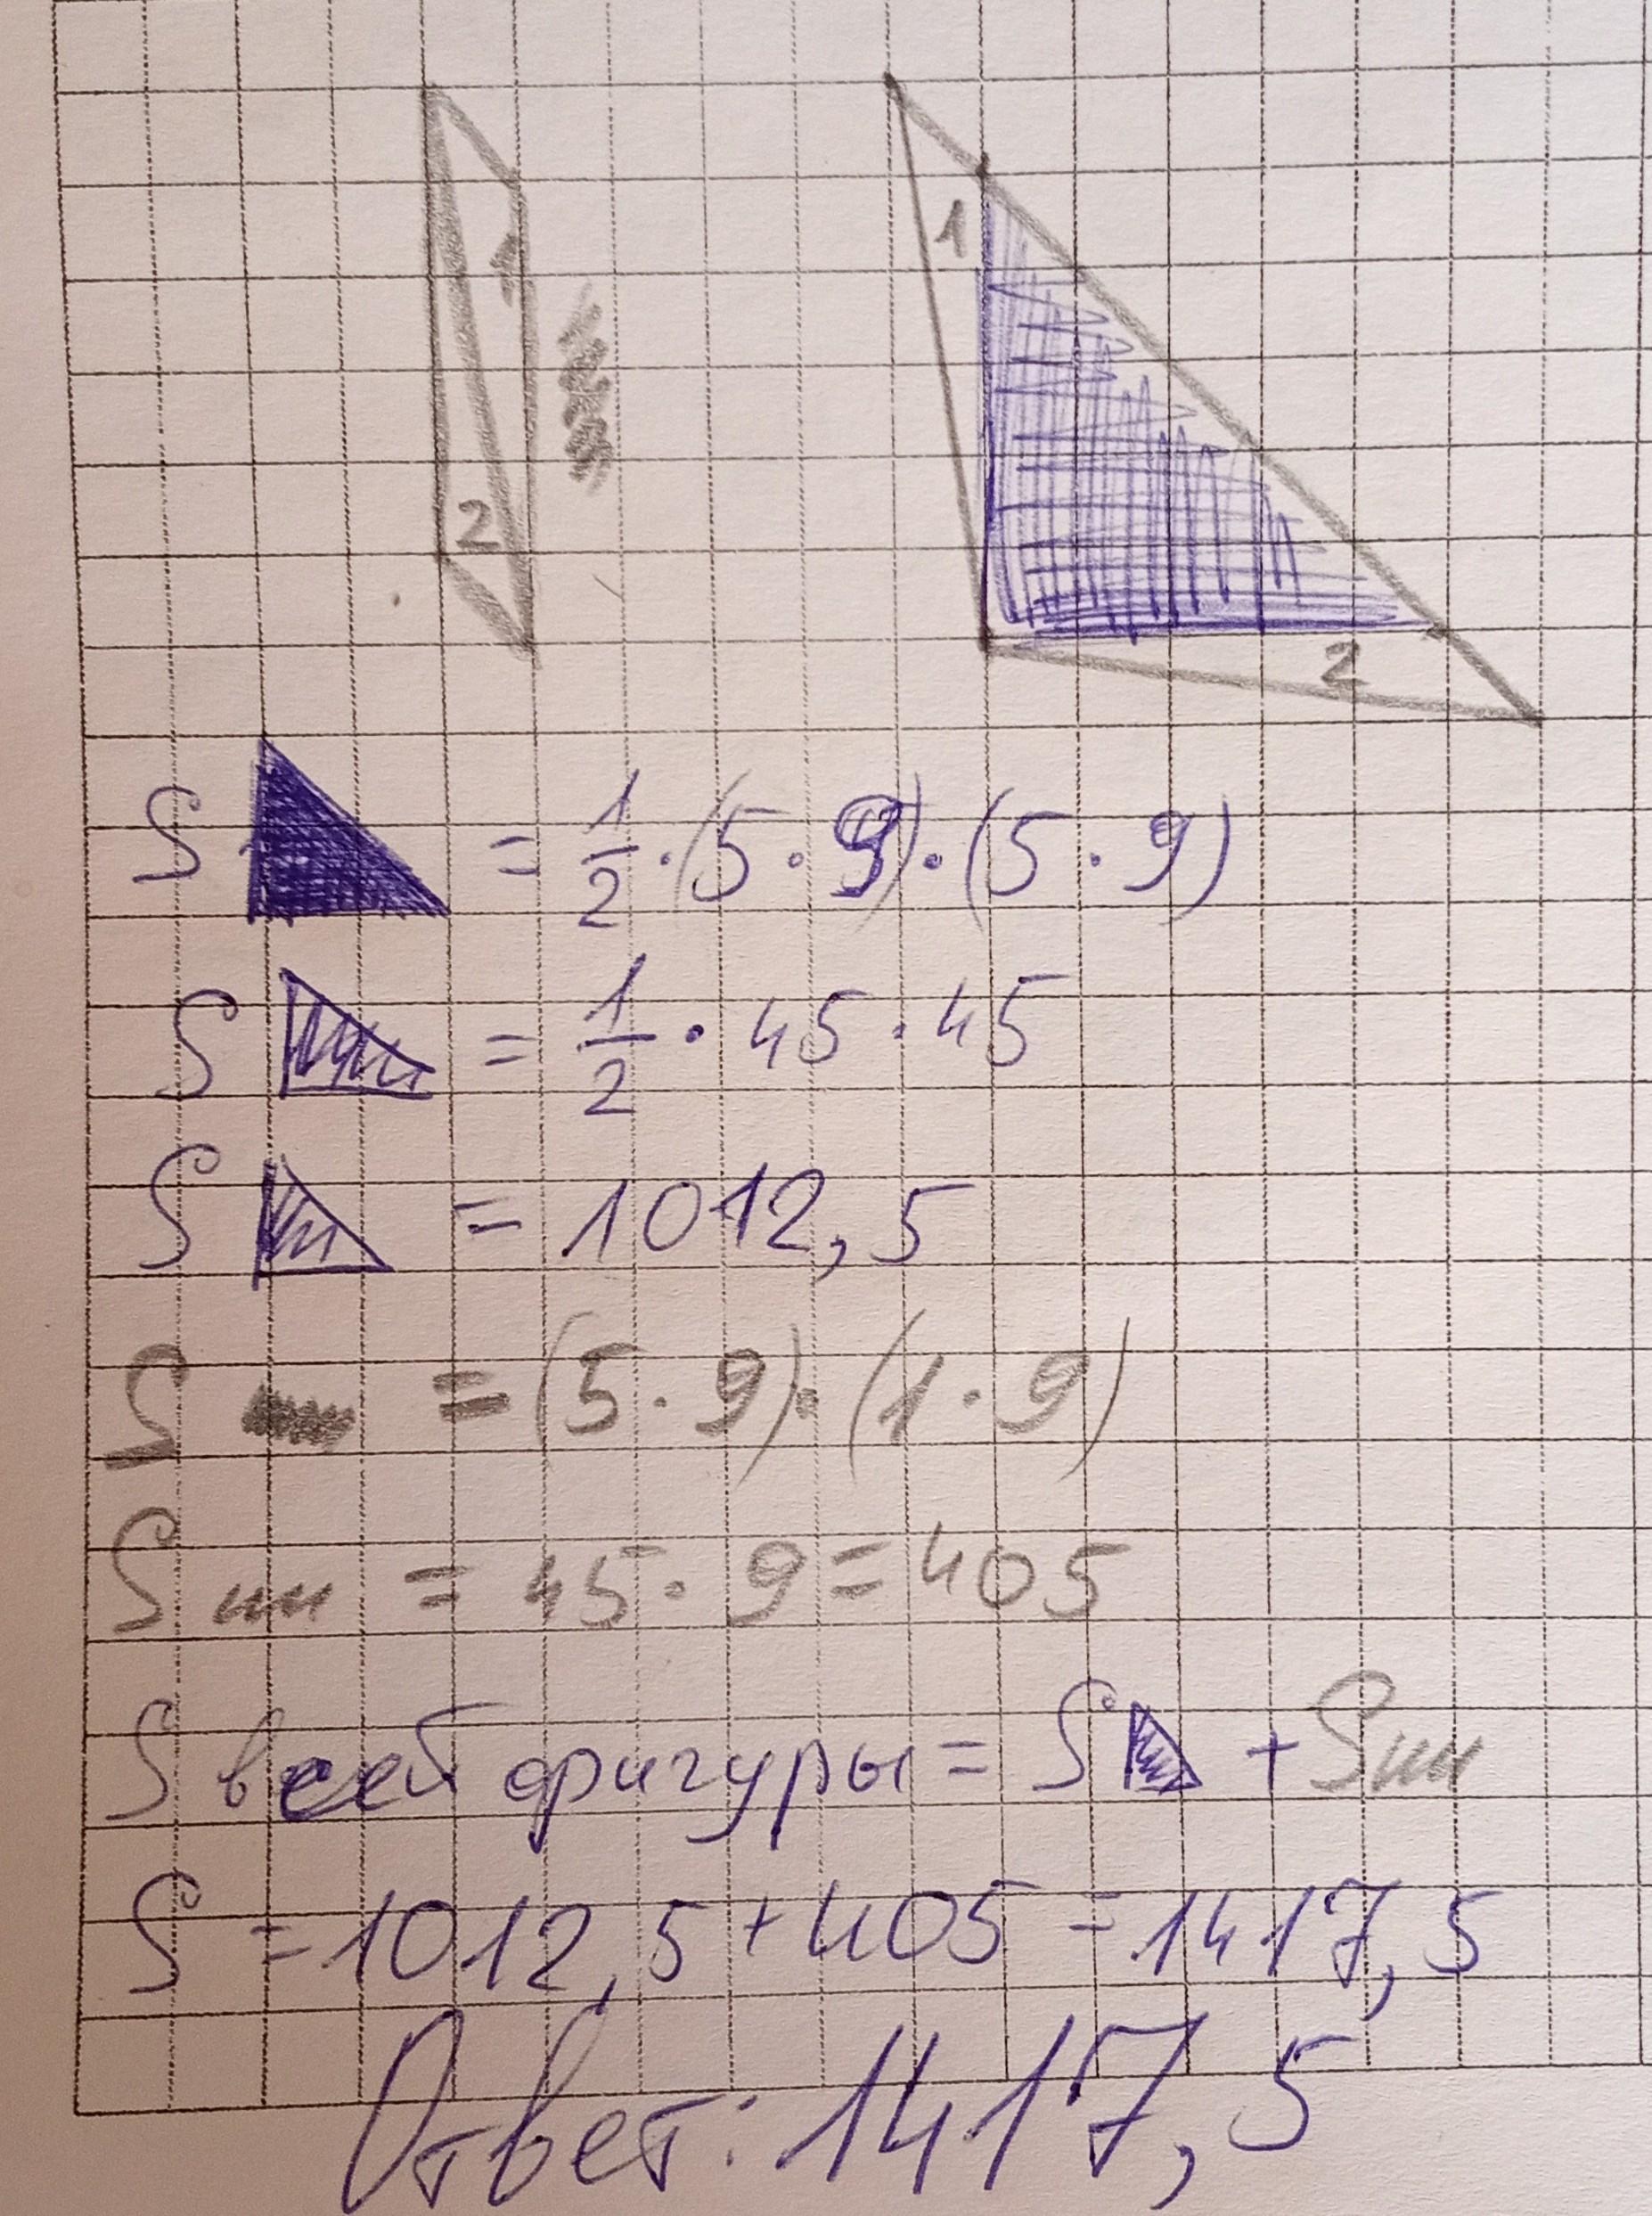 1
1
2
2
S = 1/2 · (5 · 9) · (5 · 9)
S = 1/2 · 45 · 45
S = 1012,5
S = (5 · 9) · (1 · 9)
S = 45 · 9 = 405
S всей фигуры = S + S
S = 1012,5 + 405 = 1417,5
Ответ: 1417,5